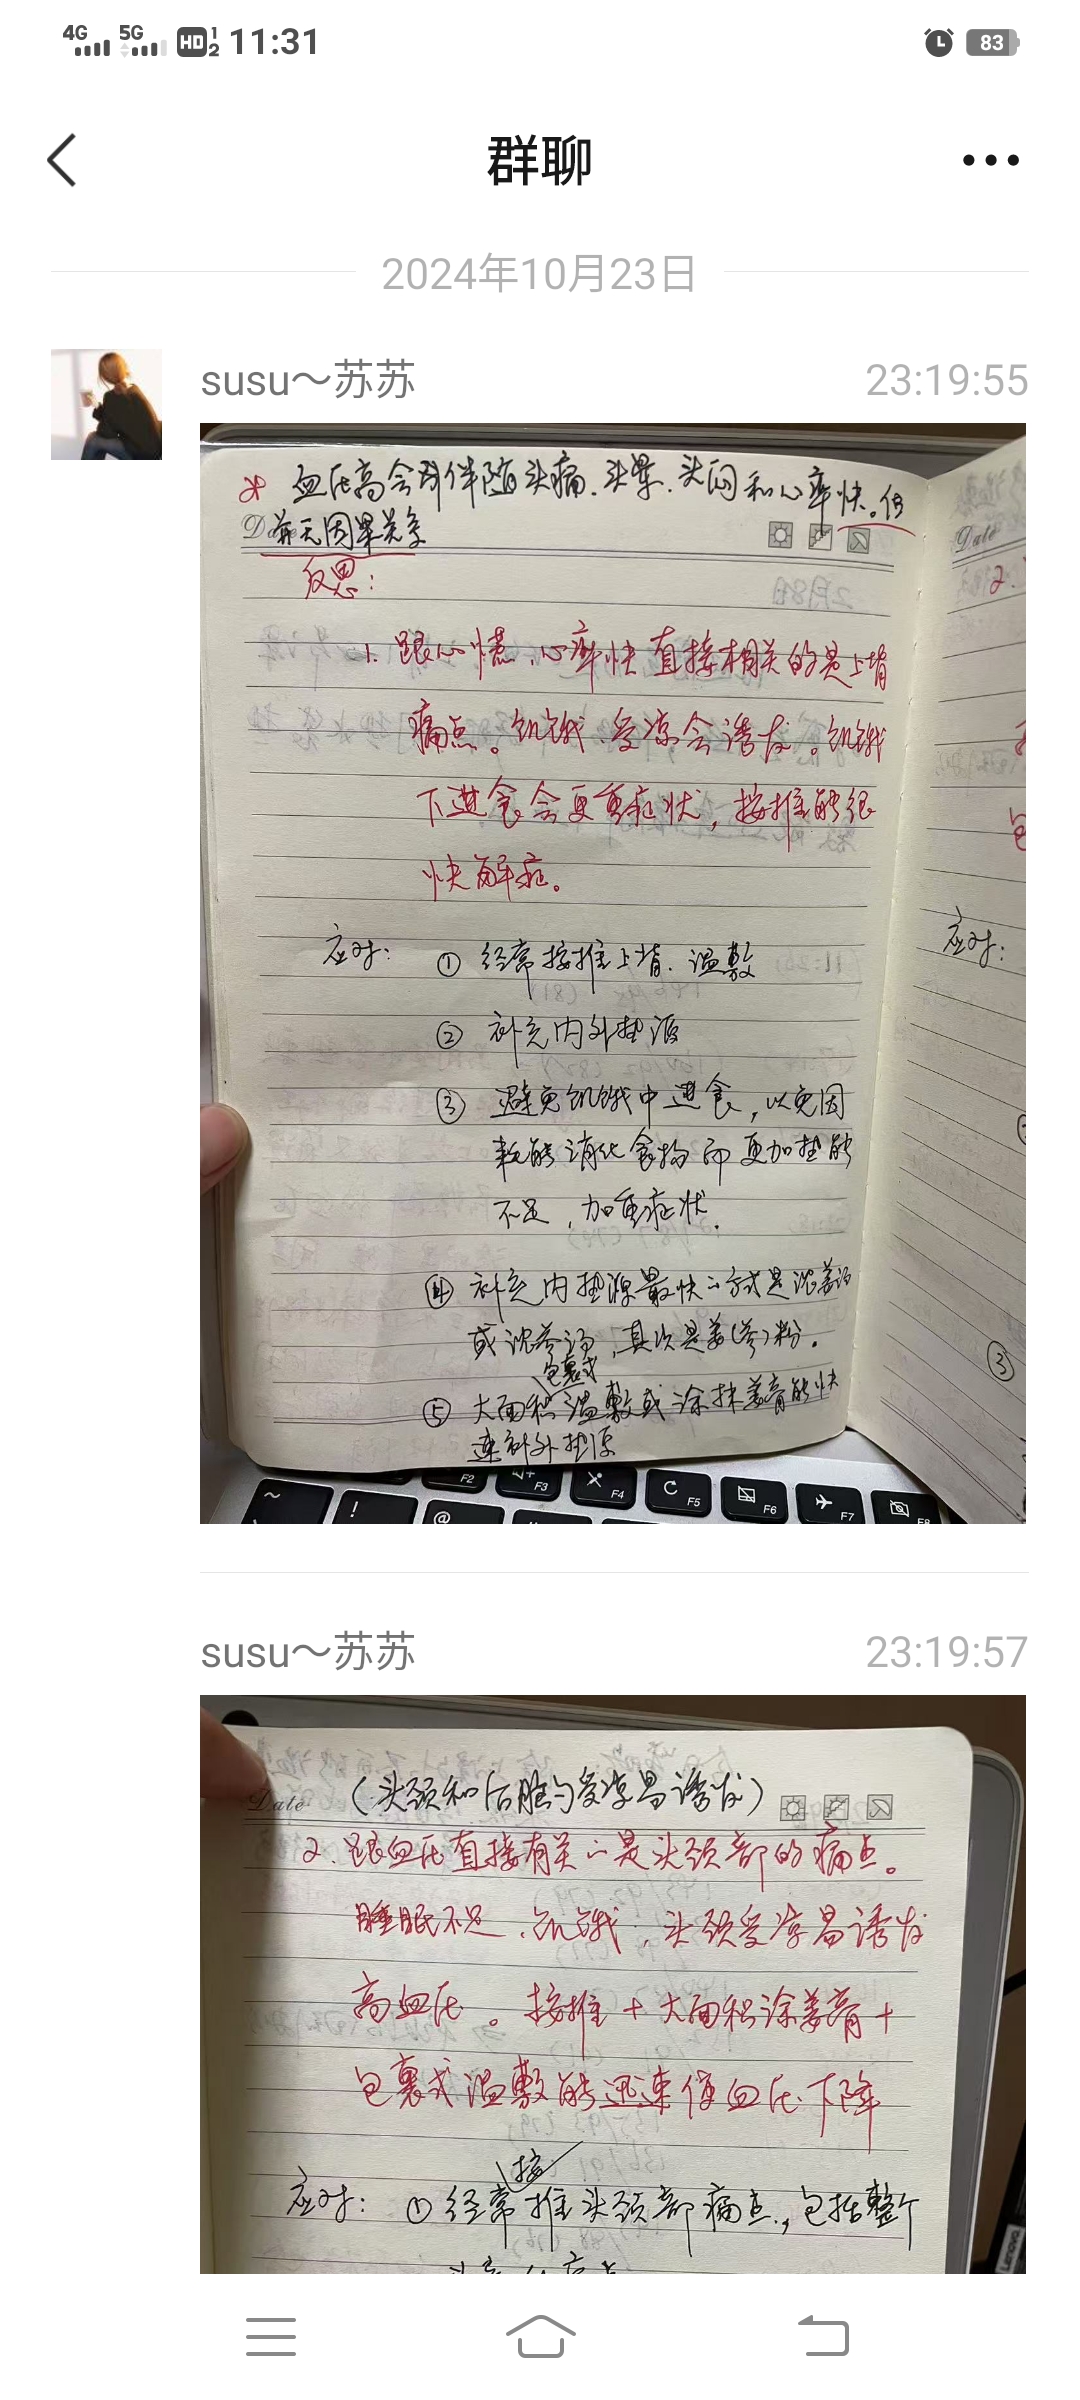 4G 5G HD 1 2 11:31 83
群聊
2024年10月23日
susu～苏苏 23:19:55
血压高会附伴随头痛、头晕、头闷和心率快。但
Date 并无因果关系
反思：
1. 跟心慌、心率快直接相关的是上背
痛点。饥饿、受凉会诱发。饥饿
下进食会更重症状，按推能很
快解症。
应对： ① 经常按推上背、温敷
② 补充内外热源
③ 避免饥饿中进食，以免因
耗能消化食物而更加热能
不足，加重症状。
④ 补充内热源最快的方式是浓姜汤
或浓参汤，其次是姜(参)粉。
包裹式
⑤ 大面积温敷或涂抹姜膏能快
速补外热源
Date
2.
应对：
③
~ ! @ F2 F3 F4 C F5 F6 F7 F8
susu～苏苏 23:19:57
Date (头颈和后脑勺受凉易诱发)
2. 跟血压直接有关的是头颈部的痛点。
睡眠不足、饥饿，头颈受凉易诱发
高血压。按推+大面积涂姜膏+
包裹式温敷能迅速使血压下降
按
应对： ① 经常推头颈部痛点，包括整个